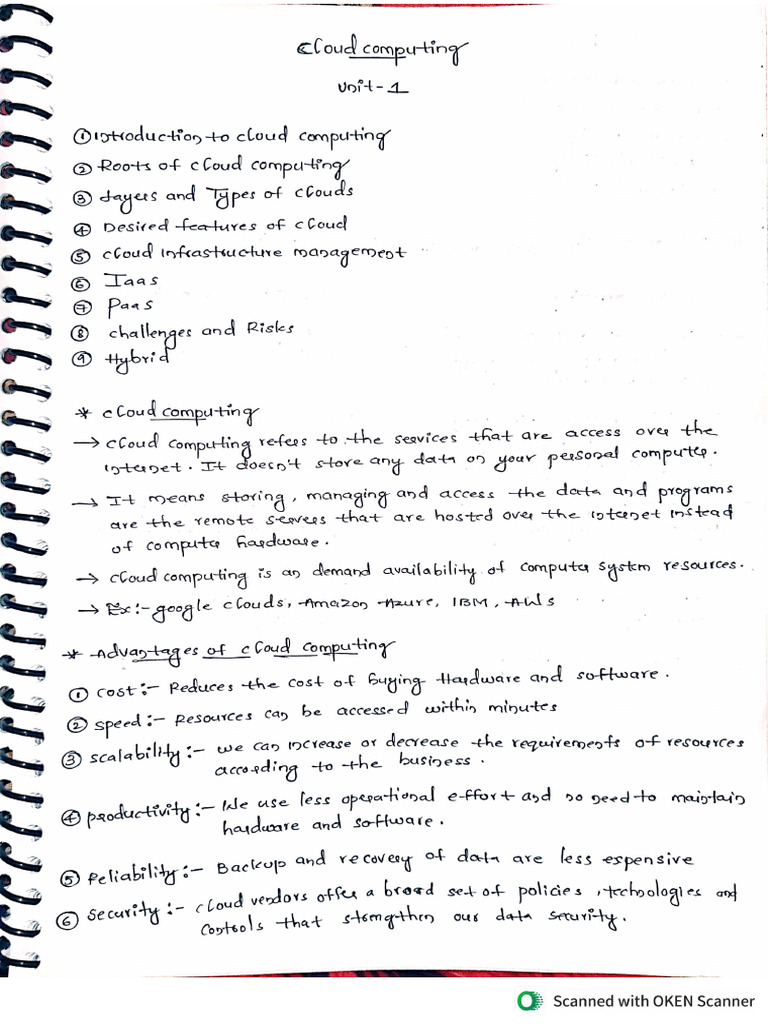 Cloud computing
Unit-1
① Introduction to cloud computing
② Roots of cloud computing
③ Layers and Types of clouds
④ Desired features of cloud
⑤ cloud Infrastructure management
⑥ Iaas
⑦ Paas
⑧ challenges and Risks
⑨ Hybrid
* cloud computing
→ cloud computing refers to the services that are access over the
internet. It doesn't store any data on your personal computer.
→ It means storing, managing and access the data and programs
are the remote servers that are hosted over the internet instead
of computer hardware.
→ cloud computing is an demand availability of computer system resources.
→ Ex:- google clouds, Amazon Azure, IBM, AWS
* Advantages of cloud computing
① cost:- Reduces the cost of buying Hardware and software.
② speed:- Resources can be accessed within minutes
③ scalability:- we can increase or decrease the requirements of resources
according to the business.
④ productivity:- We use less operational effort and no need to maintain
hardware and software.
⑤ Reliability:- Backup and recovery of data are less expensive
⑥ security:- cloud vendors offer a broad set of policies, technologies and
controls that strengthen our data security.
Scanned with OKEN Scanner